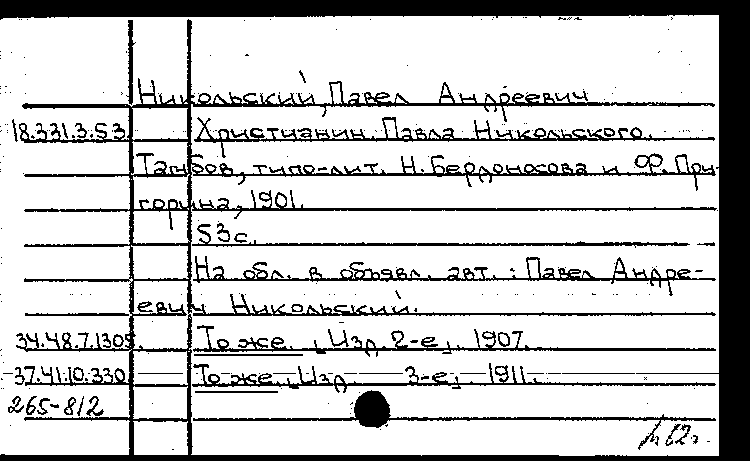 Никольский, Павел Андреевич
18.331.3.53. Христианин. Павла Никольского.
Тамбов, типо-лит. Н. Бердоносова и Ф. При-
горина, 1901.
53 с.
На обл. в объявл. авт. : Павел Андре-
евич Никольский.
34.48.7.1305. То же. [Изд. 2-е]. 1907.
37.41.10.330 То же. [Изд. 3-е]. 1911.
265-812